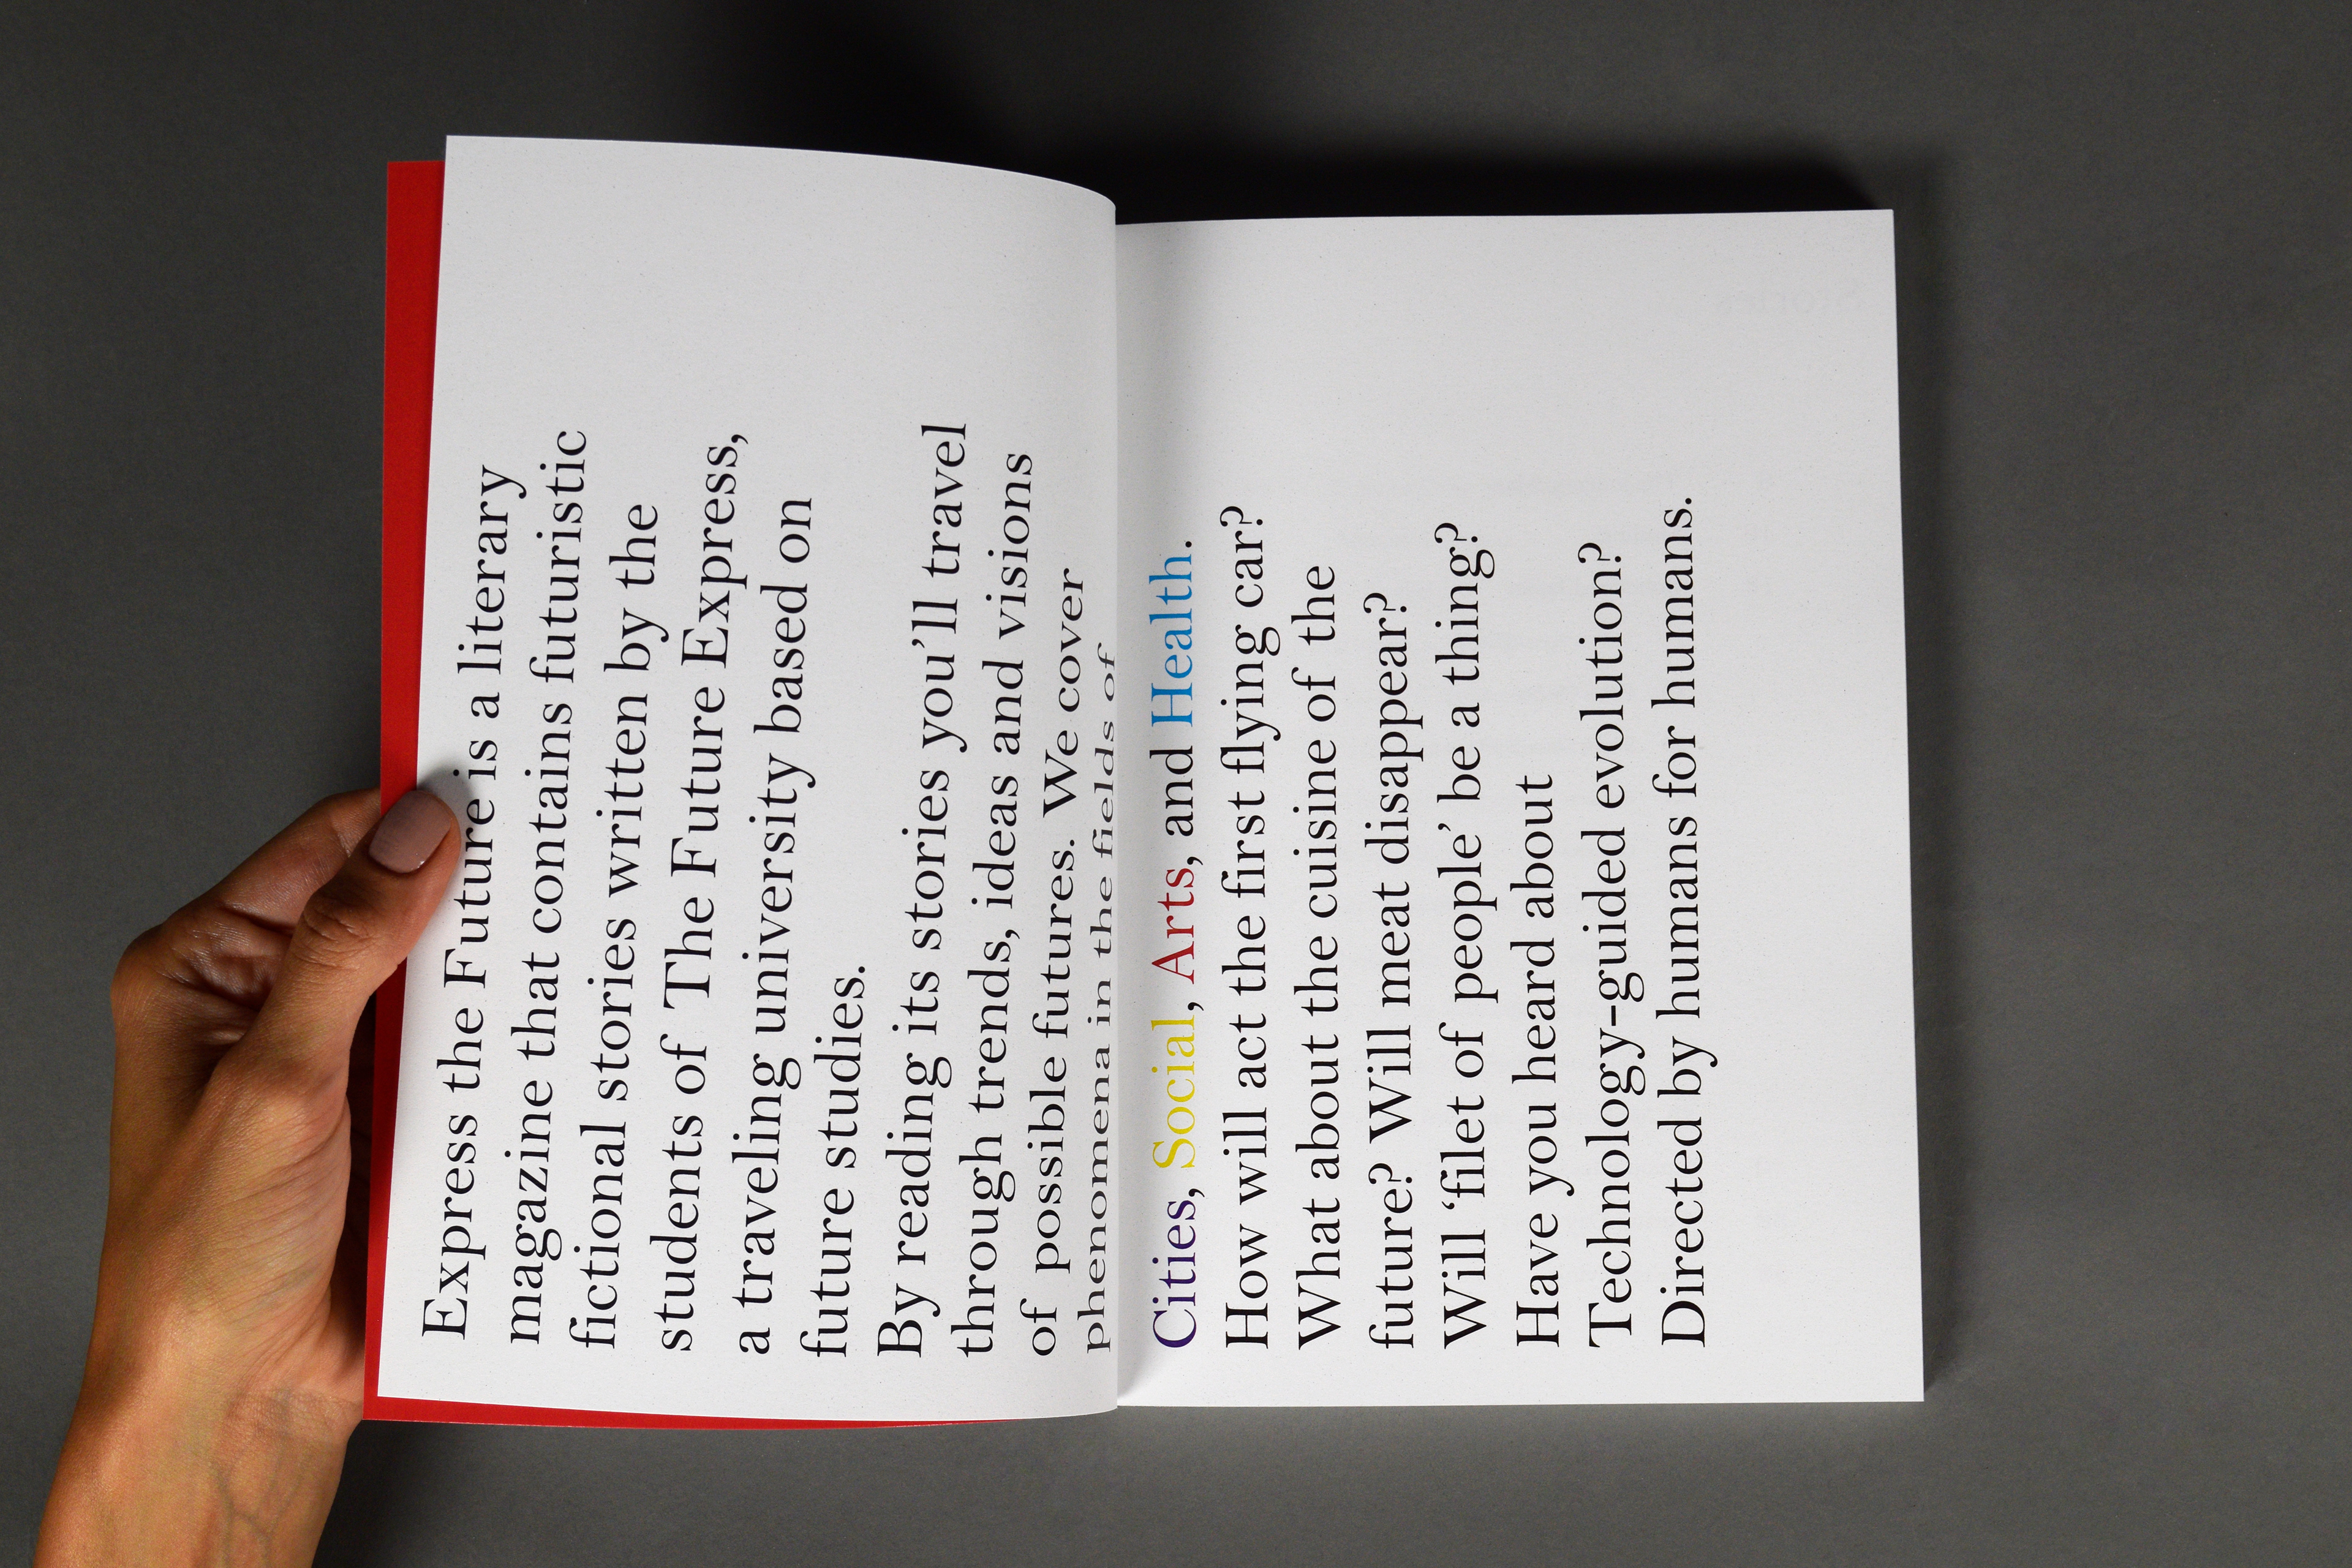 Express the Future is a literary
magazine that contains futuristic
fictional stories written by the
students of The Future Express,
a traveling university based on
future studies.
By reading its stories you’ll travel
through trends, ideas and visions
of possible futures. We cover
phenomena in the fields of
Cities, Social, Arts, and Health.
How will act the first flying car?
What about the cuisine of the
future? Will meat disappear?
Will ‘filet of people’ be a thing?
Have you heard about
Technology-guided evolution?
Directed by humans for humans.